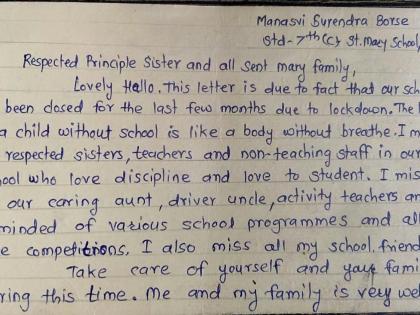 Manasvi Surendra Borse
Std- 7th (C) St. Mary School,
Respected Principle Sister and all Sent mary family,
Lovely Hallo. This letter is due to fact that our sch
been closed for the last few months due to lockdown. The
a child without school is like a body without breathe. I m
respected sisters, teachers and non-teaching staff in our
ool who love discipline and love to student. I miss
our caring aunt, driver uncle, activity teachers an
minded of various school programmes and all
e competitions. I also miss all my school friend
Take care of yourself and your fami
ring this time. Me and my family is very wel